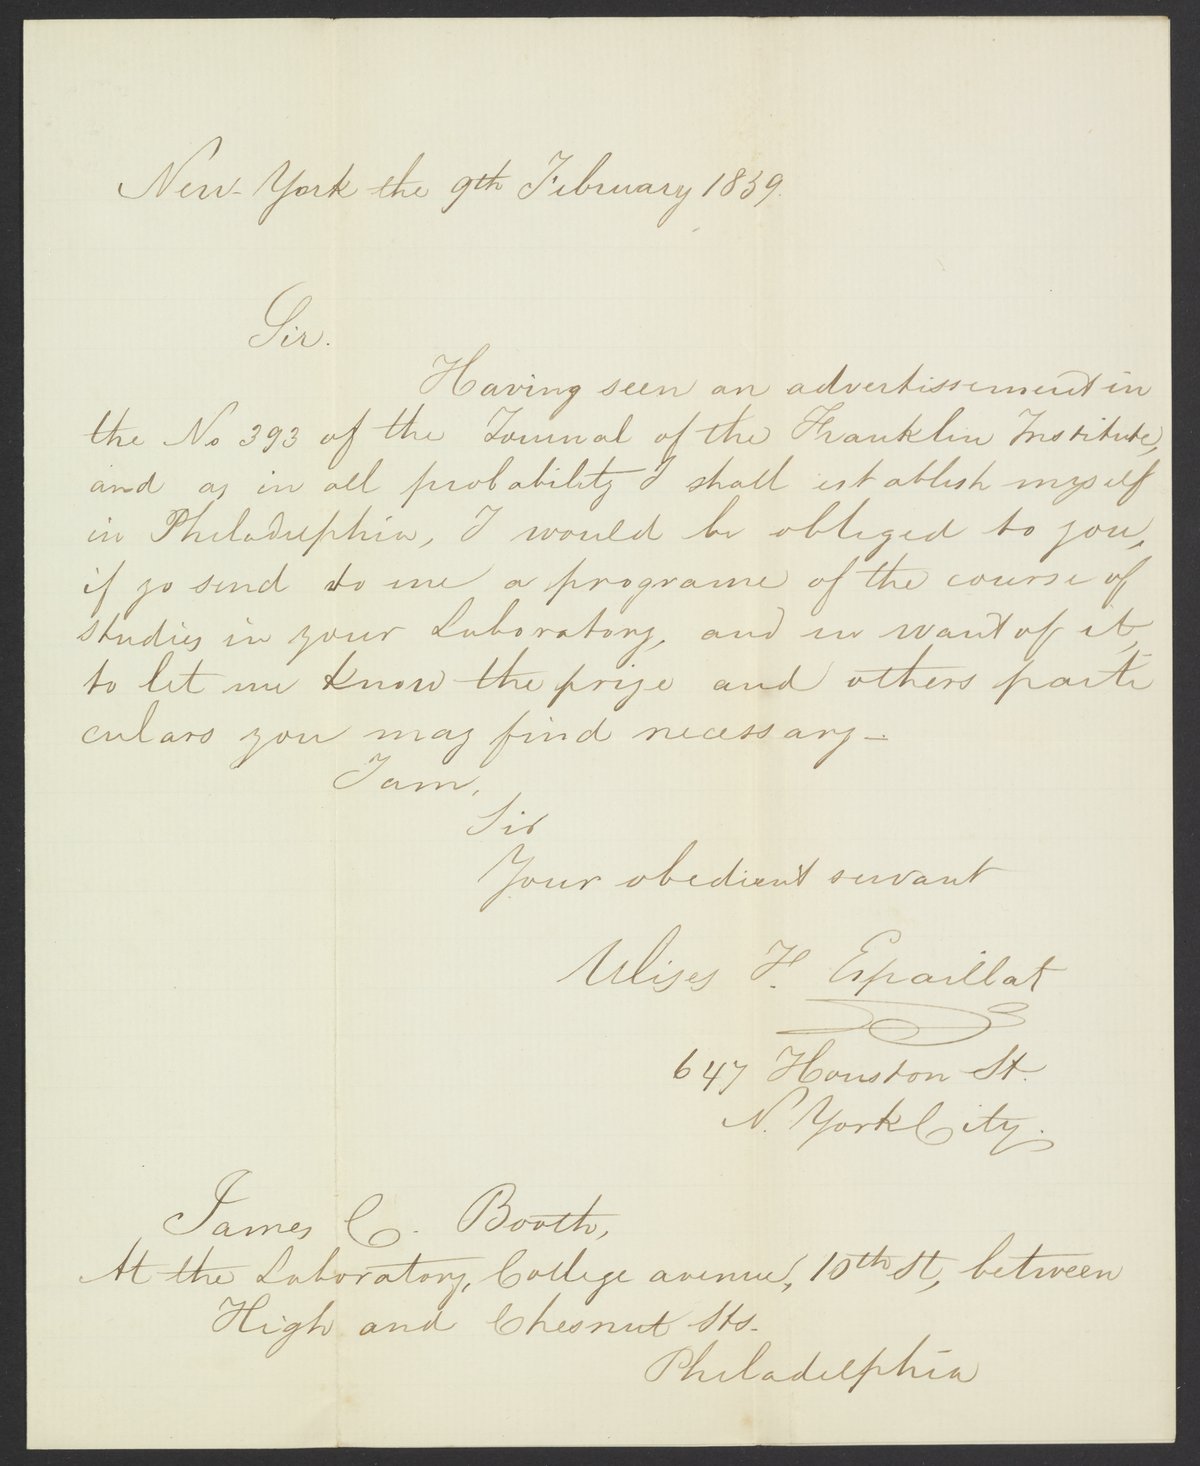 New-York the 9th February 1859.
Sir.
Having seen an advertissement in
the No 393 of the Journal of the Franklin Institute,
and as in all probability I shall establish myself
in Philadelphia, I would be obliged to you,
if yo send to me a programe of the course of
studies in your Laboratory, and in want of it,
to let me know the prize and others parti
culars you may find necessary—
I am,
Sir
Your obedient servant
Ulises F. Espaillat
647 Houston St.
N. York City.
James C. Booth,
At the Laboratory, College avenue, 10th St, between
High and Chesnut Sts.
Philadelphia